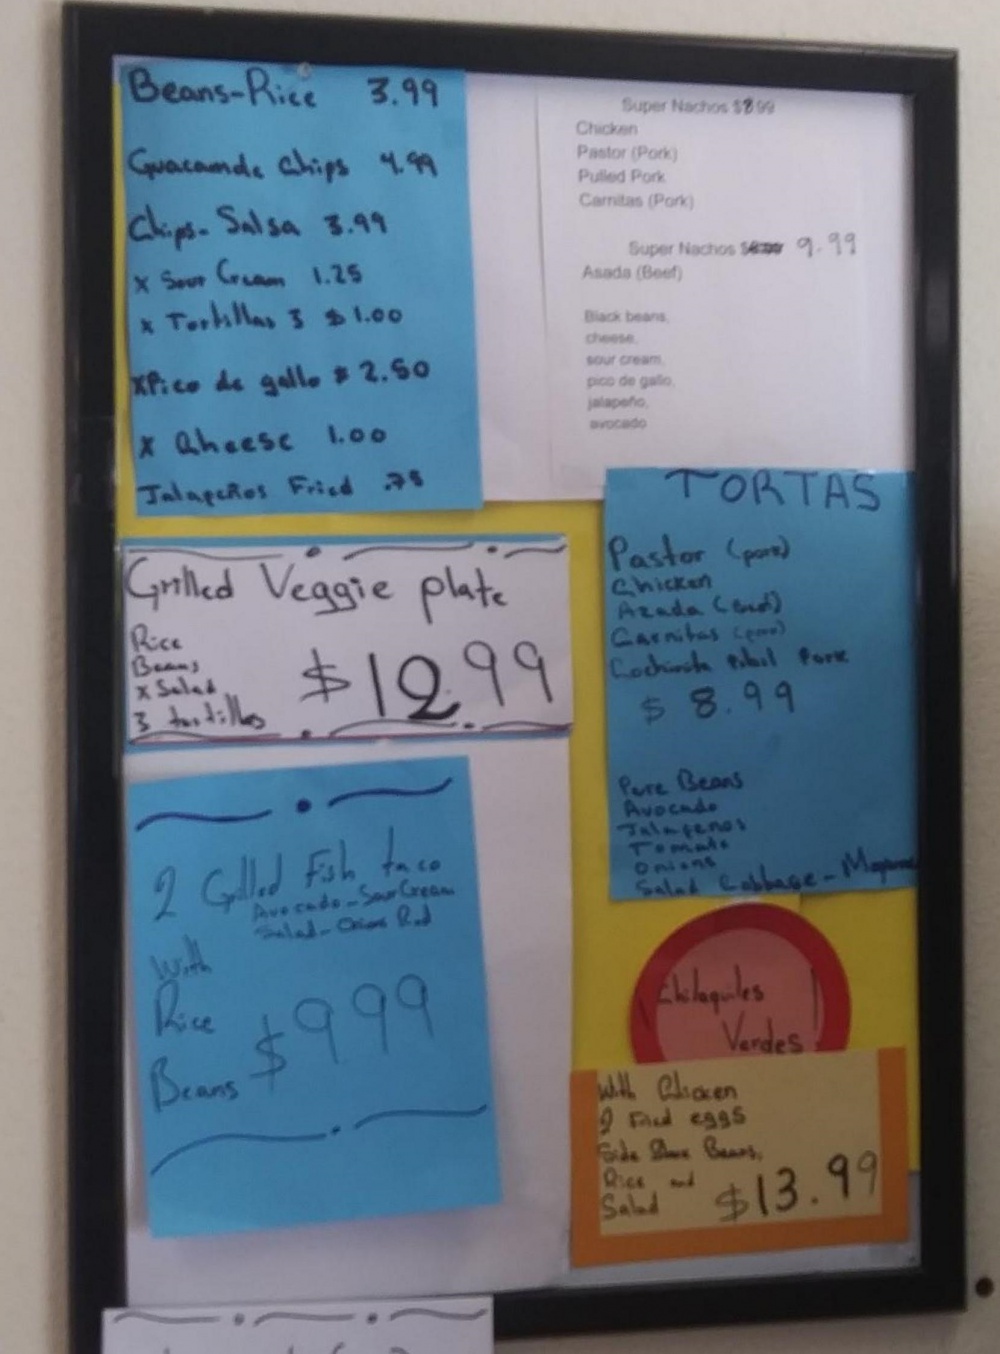 Beans-Rice 3.99
Guacamole Chips 4.99
Chips-Salsa 3.99
x Sour Cream 1.25
x Tortillas 3 $1.00
x Pico de gallo $2.50
x Qheese 1.00
Jalapeños Fried .75
Super Nachos $8.99
Chicken
Pastor (Pork)
Pulled Pork
Carnitas (Pork)
Super Nachos 9.99
Asada (Beef)
Black beans,
cheese,
sour cream,
pico de gallo,
jalapeño,
avocado
Grilled Veggie plate
Rice
Beans
x Salad
3 tortillas
$12.99
TORTAS
Pastor (pork)
Chicken
Azada (Beef)
Carnitas (pork)
Cochinita Pibil Pork
$8.99
Pure Beans
Avocado
Jalapeños
Tomato
Onions
Salad Cabbage-
2 Grilled Fish taco
Avocado-Sour Cream
Salad-Onion Red
With
Rice
Beans
$9.99
Chilaquiles
Verdes
With Chicken
2 Fried eggs
Side Beans,
Rice and
Salad
$13.99